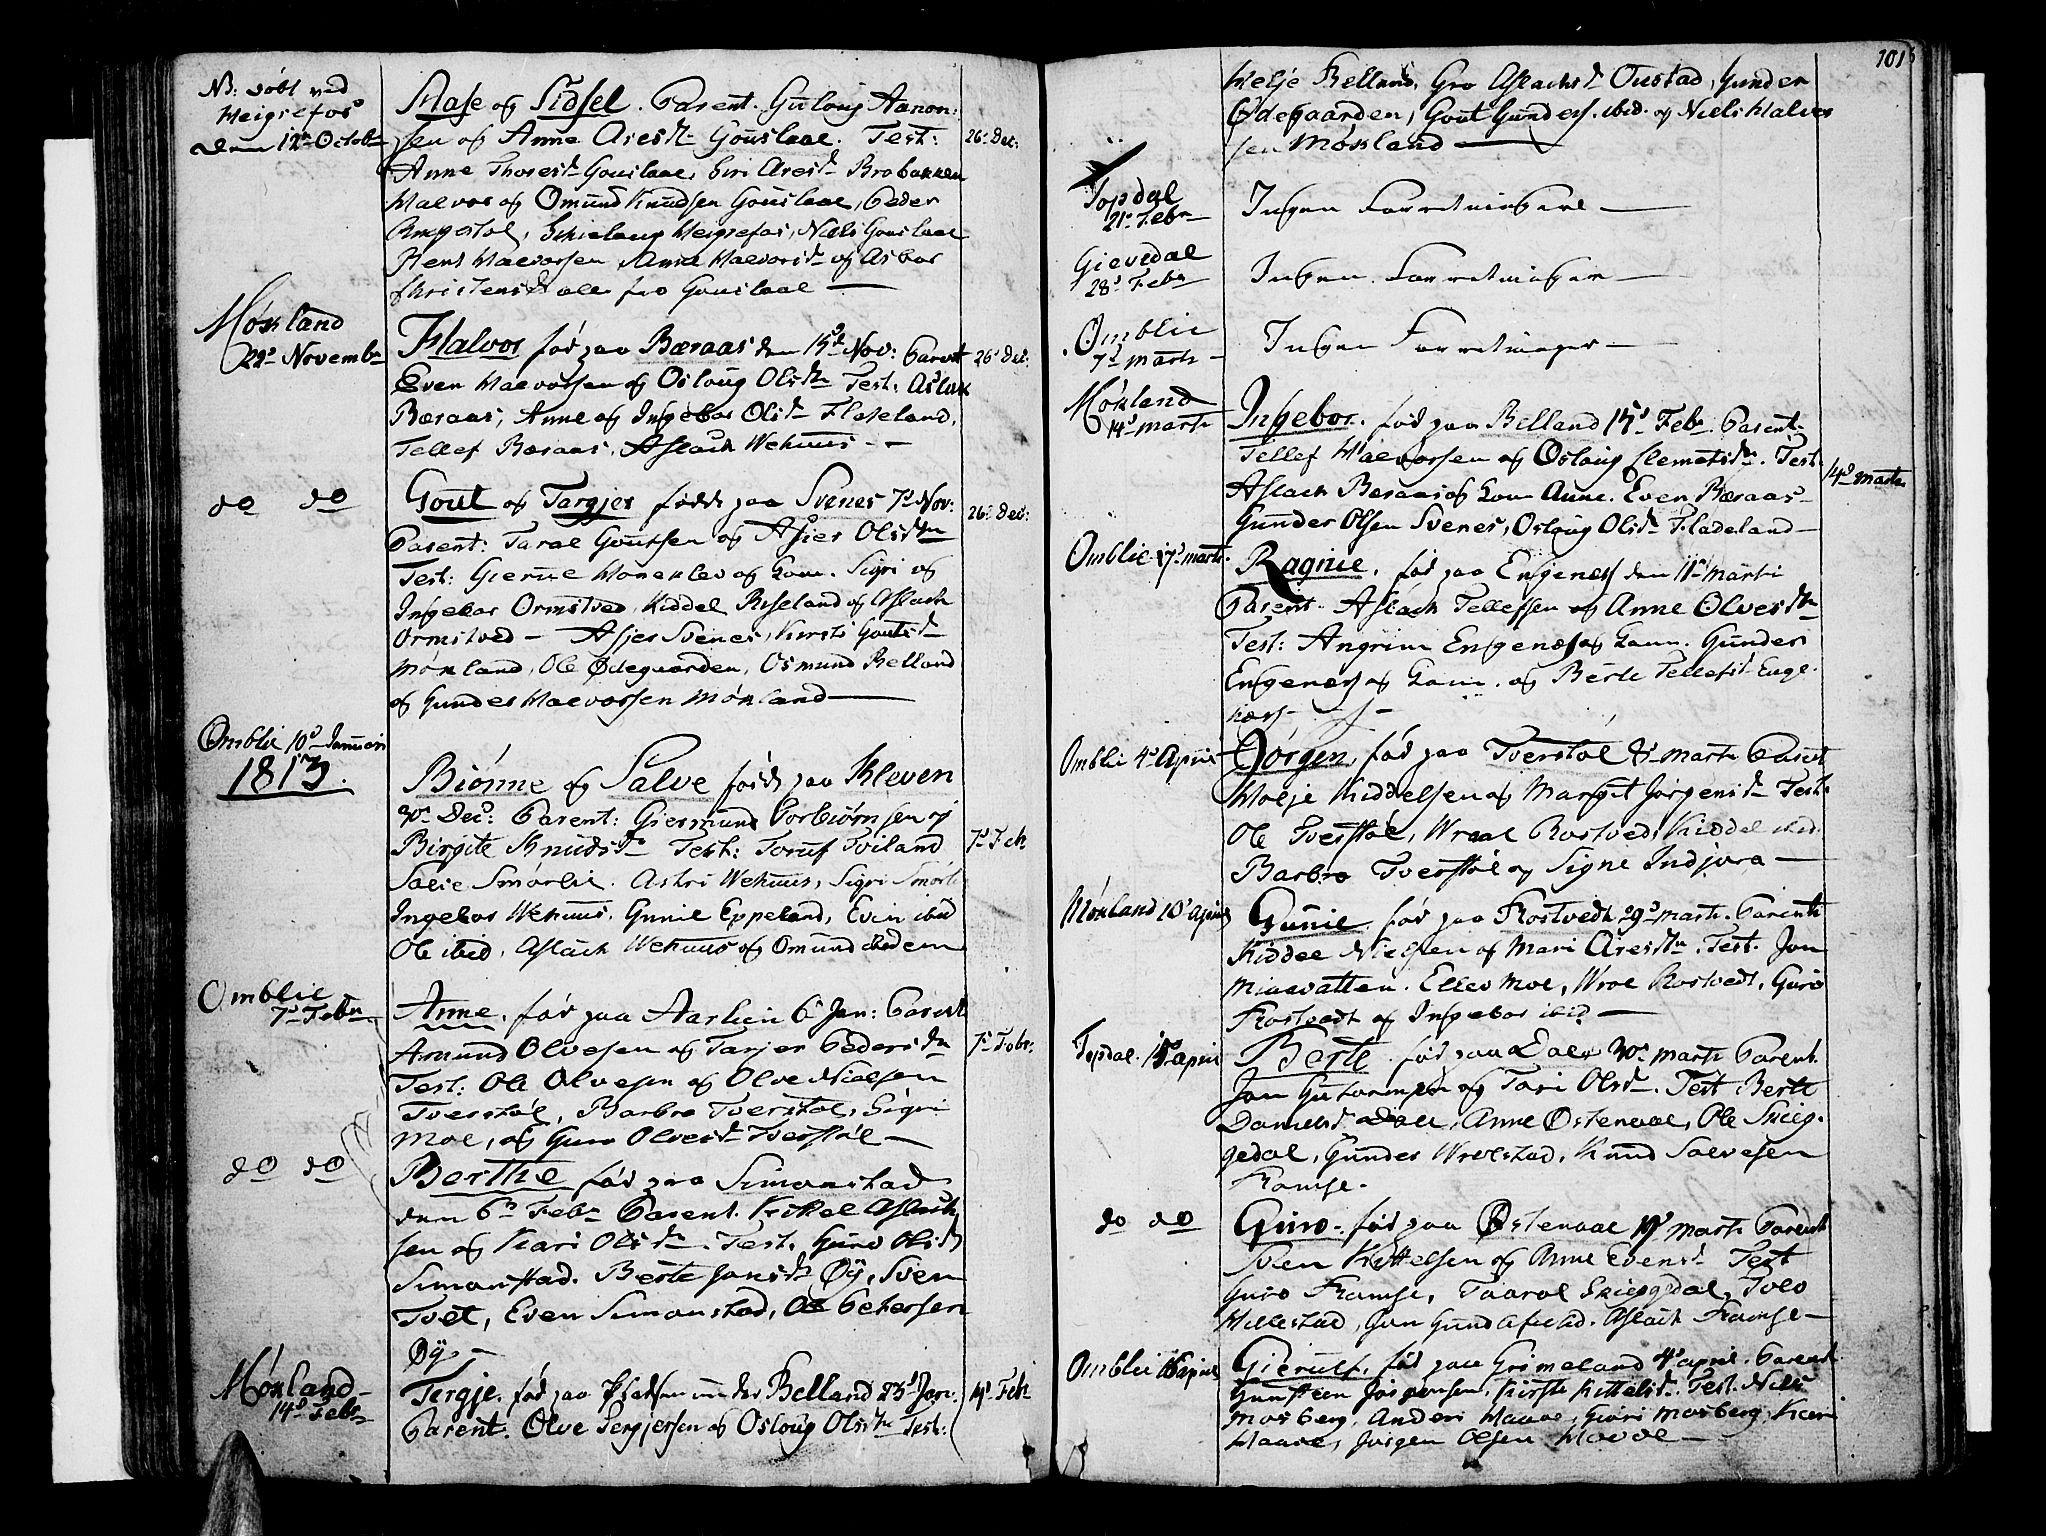 Nb: døbt ved
Heigrefos
den 12te Octobr
Aase og Sidsel. Parent. Guloug Aanon-
sen og Anne Aresdr Gouslaae. Test:
26de Dec:
Anne Thoresdr Gouslaae, Siri Aresdr Brobakken
Halvor og Omund Knudsen Gouslaae, Peder
Heigrefos, Niels Gouslaae
Halvorsen, Anne Halvorsdr og Asbor
Christensdr alle fra Gouslaae
Møkland
22de Novembr
Halvor fød paa Beraas den 15de Nov: Parent
26de Dec:
Even Halvorsen og Osloug Olsdr Test: Aslak
Beraas, Anne og Ingebor Olsdr Fladeland,
Tellef Beraas, Aslach Wehuus
do do
Gout og Targjer fødde paa Svenes 7de Nov:
26de Dec:
Parent: Taral Goutsen og Asjer Olsdr
Test: og kone. Sigri og
Ingebor Ormstved, Kiddel Riseland og Aslach
Ormstved - Asjer Svenes, Kirsti Goutsdr
Møkland, Ole Ødegaarden, Osmund Belland
og Gunder Halvorsen Møkland
Omblie 10de Januari
1813.
Biønne og Salve fødde paa Kleven
30te Dec: Parent: Giermund Torbiørnsen og
Birgite Knudsdr Test: Toruf Toiland
7de Feb
Salve Smørlie. Astri Wehuus, Sigri Smørlie
Ingebor Wehuus, Gunild Eppeland, Even ibid
Ole ibid, Aslach Wehuus og Omund ibidem
Omblie
7de Febr
Anne, fød paa Aaslien 6te Jan: Parent
Amund Olvesen og Tarjer Pedersdr
7de Febr:
Test: Ole Olvesen og Olve Nielsen
Tverstøl, Barbro Tverstøl, Sigri
Moe, og Guro Olvesdr Tverstøl
do do
Berthe fød paa Simonstad
den 6te Febr Parent. Kittel Aslach-
sen og Kari Olsdr. Test. Guro Olsdr
Simonstad. Berte Jonsdr Øy, Sven
Tvet, Even Simonstad, Ole Petersen
Øy
Møkland
14de Febr
Tergje. fød paa Pladsen under Belland 23de Jan:
14de Feb
Parent. Olve Tergjersen og Osloug Olsdr Test:
101
Helje Belland, Gro Aslachsdr Oustad, Gunder
Ødegaarden, Gout Gunders. ibid. og Niels Halvor
sen Møkland
Topdal
21de Febr
Ingen Forretninger
Gievedal
28de Febr
Ingen Forretninger
Omblie
7de Marti
Ingen Forretninger
Møkland
14de Marti
Ingebor. fød paa Belland 15de Febr. Parent.
Tellef Halvorsen og Osloug Clemetsdr. Test.
14de Marti
Aslach Beraas og Kone Anne. Even Beraas
Gunder Olsen Svenes, Osloug Olsdr Fladeland
Omblie 17de Marti
Ragnie. fød paa Engenes den 11te Marti
Parent. Aslach Tellefsen og Anne Olvesdr
Test: Angrim Engenes og Kone. Gunder
Engenes og Kone. og Berte Tellefsdr Enge-
næs
Omblie 4de April
Jørgen, fød paa Tverstøl Marti Parent
Helje Kiddelsen og Margit Jørgensdr Test:
Ole Tverstøl, Wraal Rostved, Kiddel ibid.
Barbro Tverstøl og Signe Indjora
Møkland 10de April
Gunie. fød paa Rostvedt 29de Marti. Parent
Kiddel Nielsen og Mari Aresdr. Test. Jon
Miaavatten. Ellev Moe, Wrol Rostvedt, Guro
Rostvedt og Ingebor ibid
Topdal. 15de April
Berte. fød paa Dale 30te Marti Parent.
Jon Guttormsen og Tori Olsdr. Test Berte
Danielsdr Dale, Anne Østenaae, Ole Skieg-
gedal, Gunder Wrolstad, Knud Salvesen
Ramse.
do do
Guro. fød paa Østenaae Marti Parent
Sven Kittelsen og Anne Evensdr Test
Guro Ramse, Taaral Skieggedal, Tolv
Hillestad, Jon Gundersen ibid. Aslach Ramse
Omblie 16de April
Gierulf. fød paa Grimeland 4de April. Parent
Gunsteen Jørgensen, Kirsti Kittelsdr. Test. Niels
Mosberg, Anders Haave, Guri Mosberg, Kari
Haave, Jørgen Olsen Haave